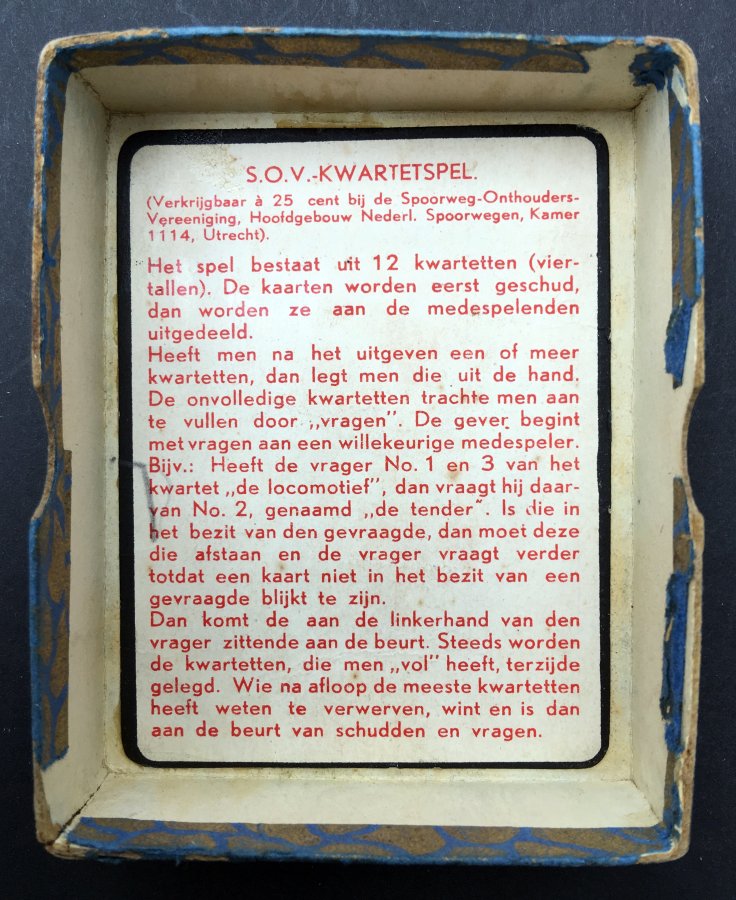 S.O.V.-KWARTETSPEL.
(Verkrijgbaar à 25 cent bij de Spoorweg-Onthouders-
Vereeniging, Hoofdgebouw Nederl. Spoorwegen, Kamer
1114, Utrecht).
Het spel bestaat uit 12 kwartetten (vier-
tallen). De kaarten worden eerst geschud,
dan worden ze aan de medespelenden
uitgedeeld.
Heeft men na het uitgeven een of meer
kwartetten, dan legt men die uit de hand.
De onvolledige kwartetten trachte men aan
te vullen door „vragen”. De gever begint
met vragen aan een willekeurige medespeler.
Bijv.: Heeft de vrager No. 1 en 3 van het
kwartet „de locomotief”, dan vraagt hij daar-
van No. 2, genaamd „de tender”. Is die in
het bezit van den gevraagde, dan moet deze
die afstaan en de vrager vraagt verder
totdat een kaart niet in het bezit van een
gevraagde blijkt te zijn.
Dan komt de aan de linkerhand van den
vrager zittende aan de beurt. Steeds worden
de kwartetten, die men „vol” heeft, terzijde
gelegd. Wie na afloop de meeste kwartetten
heeft weten te verwerven, wint en is dan
aan de beurt van schudden en vragen.